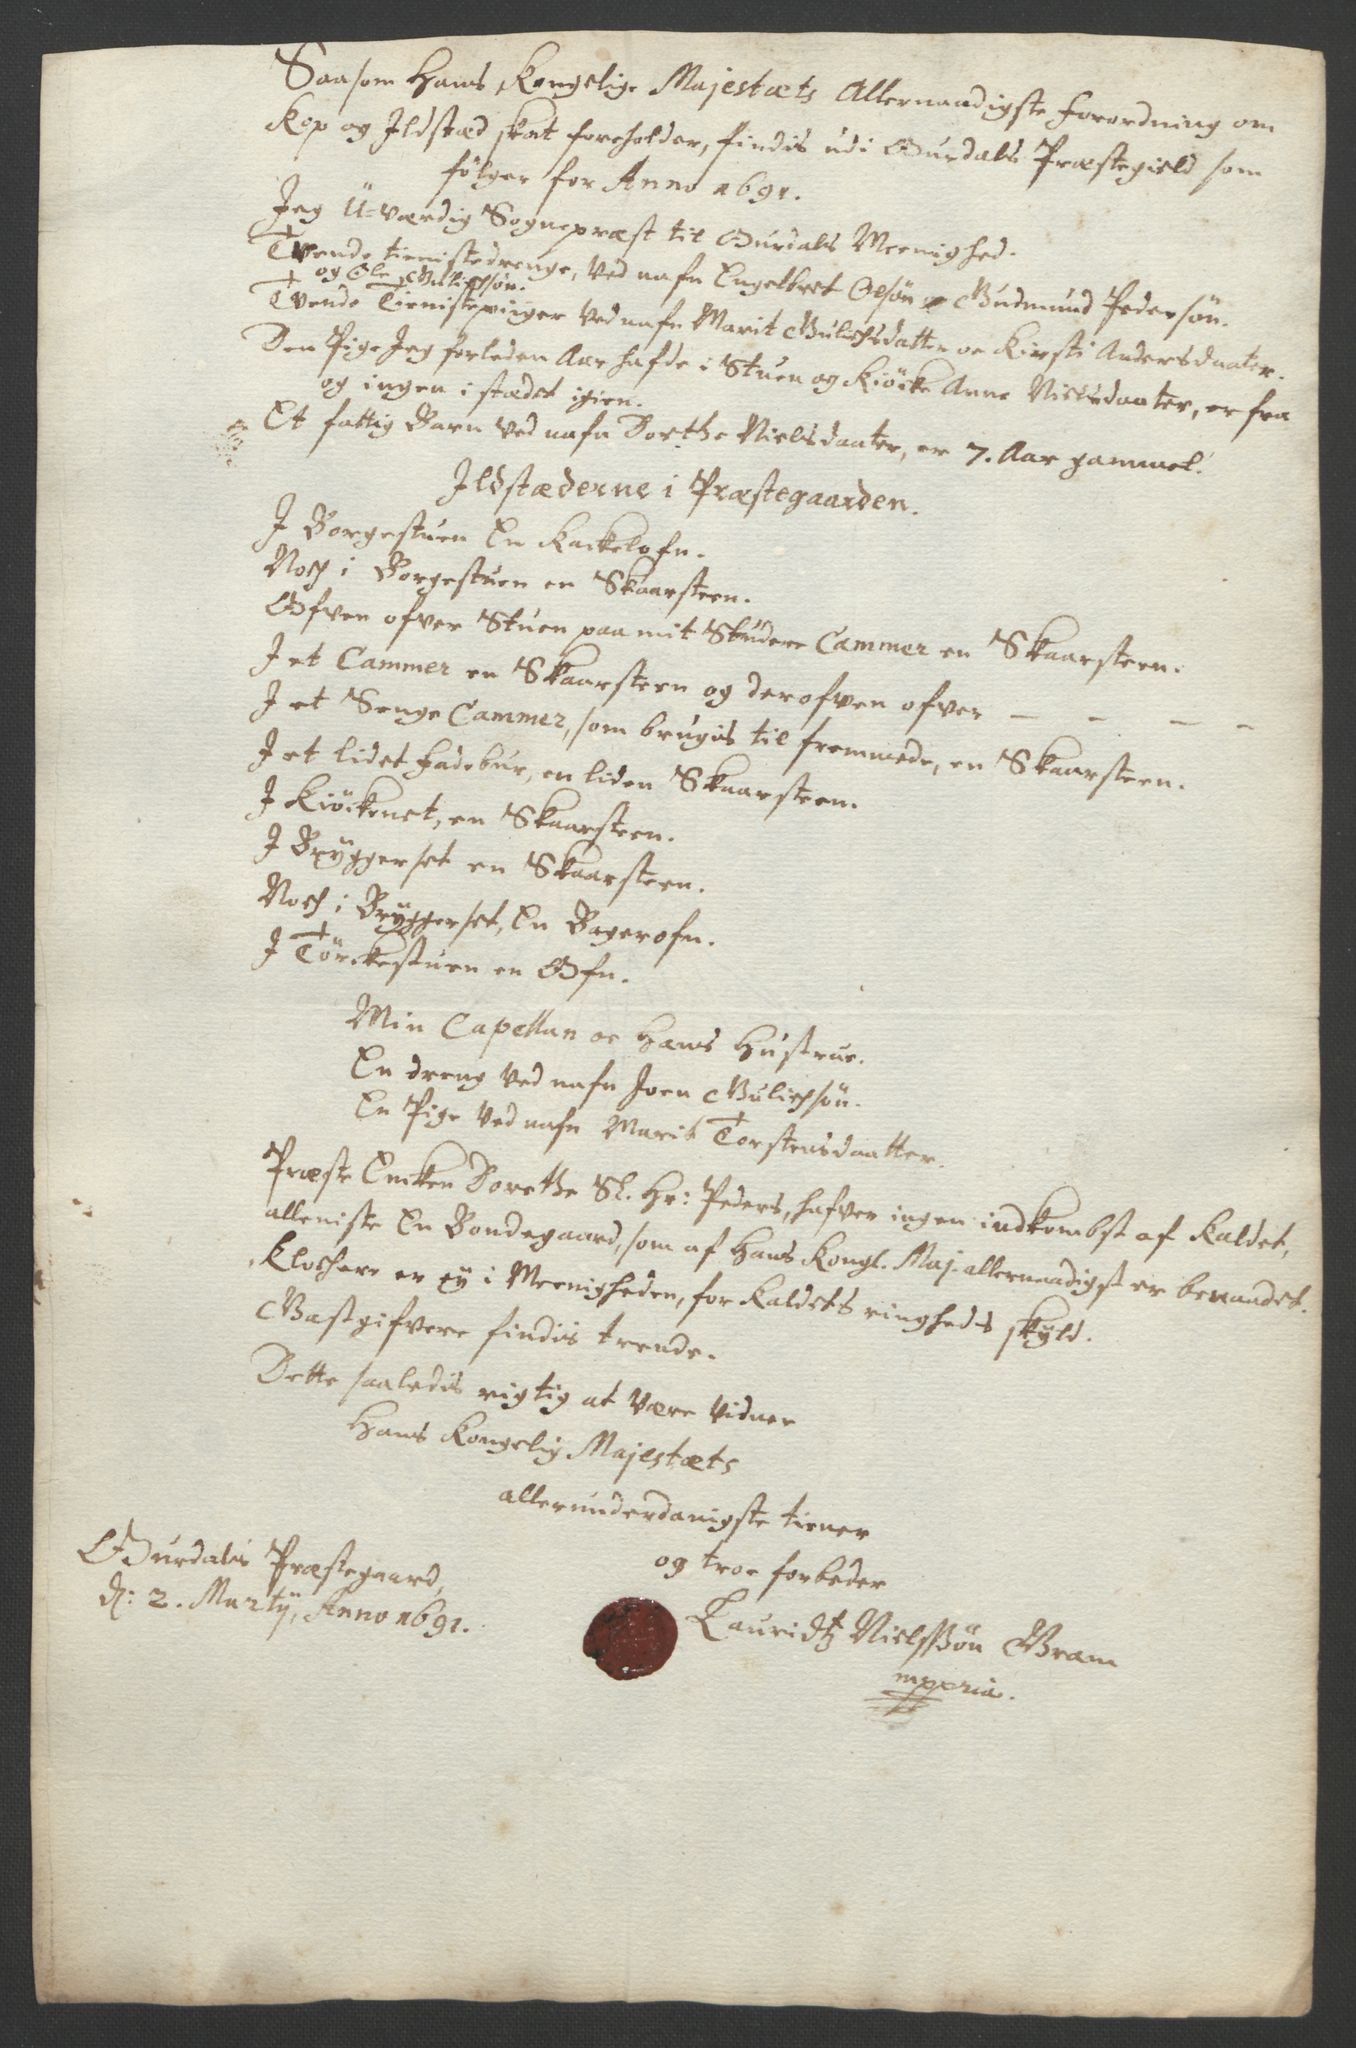 Saasom Hans Kongelige Majestæts Allernaadigste forordning om
Kop og Ildstæd skat foreholder, findis udi Ourdals Præstegield som
følger for Anno 1691.
Jeg U-værdig Sognepræst til Ourdals Meenighed.
Tvende tienistedrenge, Ved nafn Engelbret Olsøn Gudmund Pedersøn.
og Ole Gulichsøn.
Tvende Tienistepiiger Ved nafn Marit Gulichsdatter oc Kirsti Andersdaater.
Den Pige Jeg forleden Aar hafde i Stuen og Kiöcke Anne Nielsdaater, er fra
og ingen i stædet igien.
Et fattig Barn Ved nafn Dorthe Nielsdaater, er 7. Aar gammel.
Ildstæderne i Præstegaarden.
J Borgestuen En Kackelofn.
Noch i Borgestuen en Skaarsteen.
Ofven ofver Stuen paa mit Studere Cammer en Skaarsteen.
J et Cammer en Skaarsteen og der ofven ofver — - — —
J et Senge Cammer, som brugis til fremmede, en Skaarsteen.
J et lidet Fadebur, en liden Skaarsteen.
J Kiöckenet, en Skaarsteen.
J Bryggerset en Skaarsteen.
Noch i Bryggerset, En Bagerofn.
J Törckestuen en Ofn.
Min Capellan oc Hans Hustrue.
En dreng Ved nafn Joen Gulichsøn.
En Pige Ved nafn Marit Torstensdaatter.
Præste Encken Dorethe Sl. Hr: Peders, hafver ingen indkombst af Kaldet,
alleniste En Bondegaard, som af Hans Kongl. Maj. allernaadigst er benaadet.
Klochere er ey i Meenigheden, for Kaldets ringheds skyld.
Gastgifvere findis trende.
Dette saaledis rigtig at være vidner
Hans Kongelig Majestæts
allerunderdanigste tiener
og troe forbeder
Ourdals Præstegaard,
d: 2. Martij, Anno 1691.
Lauridtz Nielssøn Gram
mppria.